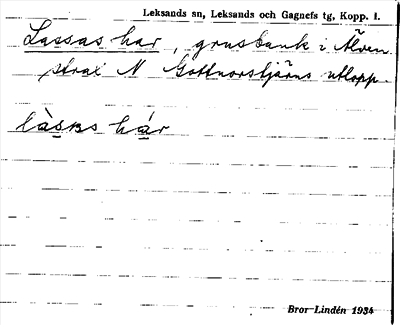 Leksands sn, Leksands och Gagnefs tg, Kopp. l.
Lassas har, grusbank i Älven
strax N Gottnorstjärns utlopp.
làsas hár
Bror Lindén 1934